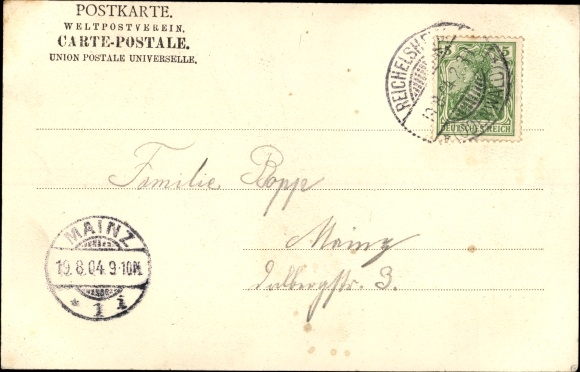 POSTKARTE.
WELTPOSTVEREIN.
CARTE-POSTALE.
UNION POSTALE UNIVERSELLE.
REICHELSHEIM
5 5
DEUTSCHES REICH
Familie Popp
Mainz
Dalbergstr. 3.
MAINZ
19.8.04.9-10N.
* 1 i